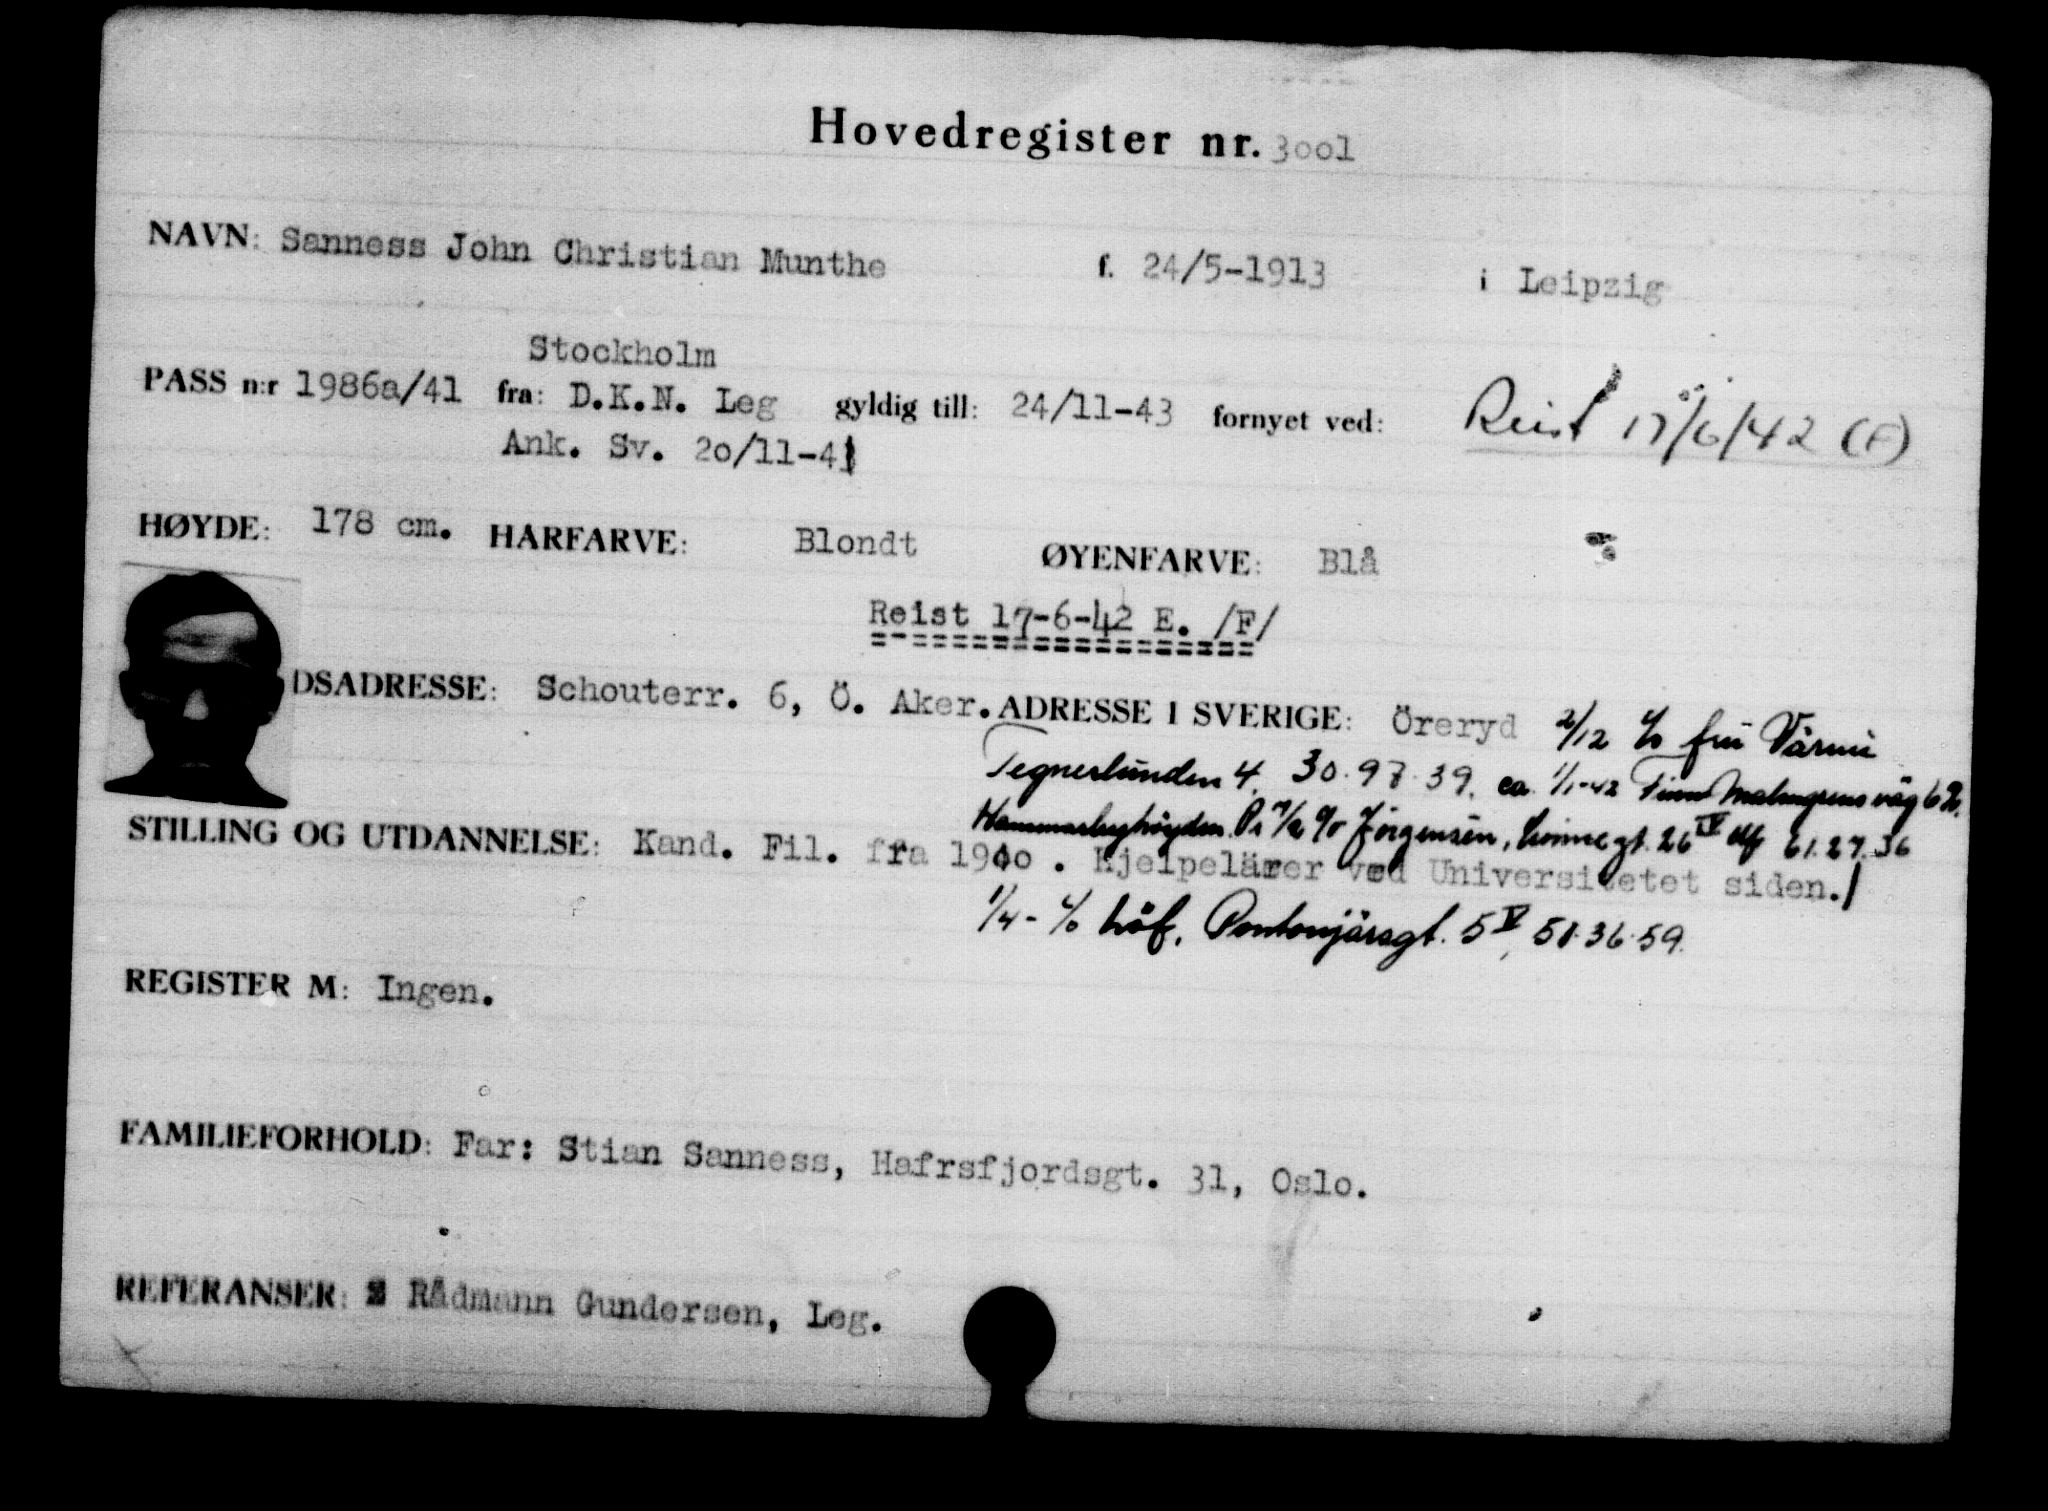 Hovedregister nr. 3001
NAVN: Sanness John Christian Munthe f. 24/5-1913 i Leipzig
Stockholm
PASS n:r 1986a/41 fra: D.K.N. Leg gyldig till: 24/11-43 fornyet ved: Reist 17/6/42 (F)
Ank. Sv. 20/11-41
HØYDE: 178 cm. HÅRFARVE: Blondt ØYENFARVE: Blå
Reist 17-6-42 E. /F/
DSADRESSE: Schouterr. 6, Ö. Aker. ADRESSE I SVERIGE: Öreryd 2/12 c/o fru Värmi
Tegnerlunden 4. 30.97.39. ca. 1/1-42 Finn Malmgrens väg 6
Hammarbyhöjden. c/o Jörgensen, gt. 26 IV 61.27.36
STILLING OG UTDANNELSE: Kand. Fil. fra 1940 . Hjelpelärer ved Universitetet siden./
1/4 - c/o Löf. Pontonjärsgt. 5 V, 51.36.59.
REGISTER M: Ingen.
FAMILIEFORHOLD: Far: Stian Sanness, Hafrsfjordsgt. 31, Oslo.
REFERANSER: Rådmann Gundersen, Leg.